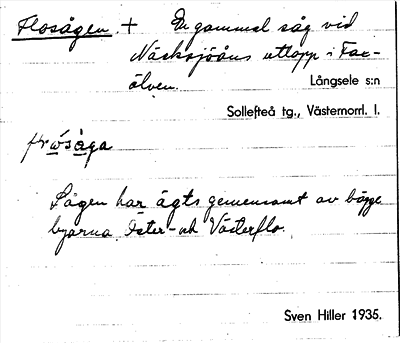 Flosågen. + En gammal såg vid
Näcksjöåns utlopp i Fax-
älven.
Långsele s:n
Sollefteå tg., Västernorrl. l.
såga
Sågen har ägts gemensamt av bägge
byarna Öster- och Västerflo.
Sven Hiller 1935.